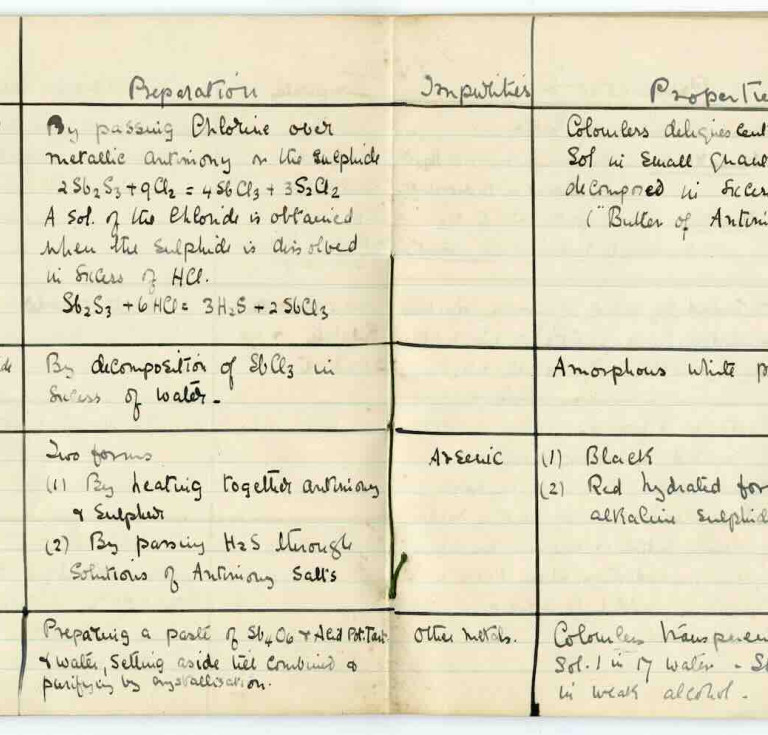 Preparation
Impurities
Propertie
By passing Chlorine over
metallic antimony or the Sulphide
2Sb2S3 + 9Cl2 = 4SbCl3 + 3S2Cl2
A Sol. of the Chloride is obtained
when the Sulphide is dissolved
in Excess of HCl.
Sb2S3 + 6HCl = 3H2S + 2SbCl3
Colourless deliquescent
Sol in Small quan
decomposed in Exces
("Butter of Antim
de
By decomposition of SbCl3 in
Excess of water.
Amorphous white p
Two forms
(1) By heating together antimony
& Sulphur
(2) By passing H2S through
Solutions of Antimony Salts
Arsenic
(1) Black
(2) Red hydrated for
alkaline Sulphid
Preparing a paste of Sb4O6 & Acid Pot. Tart.
& water, Setting aside till combined &
purifying by crystallisation.
Other metals.
Colourless transparen
Sol. 1 in 17 water - S
in weak alcohol.